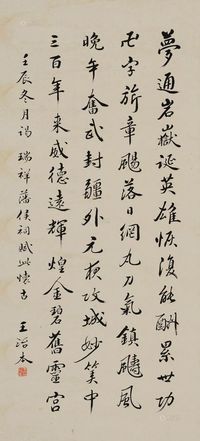 夢通岩嶽誕英雄恢復能酬累世功
卍字旂章颺落日網丸刀氣鎮颶風
晚年奮武封疆外元夜攻城妙算中
三百年来威德遠輝煌金碧舊靈宫
壬辰冬月謁 瑞祥藩侯祠賦此懷古 王治本